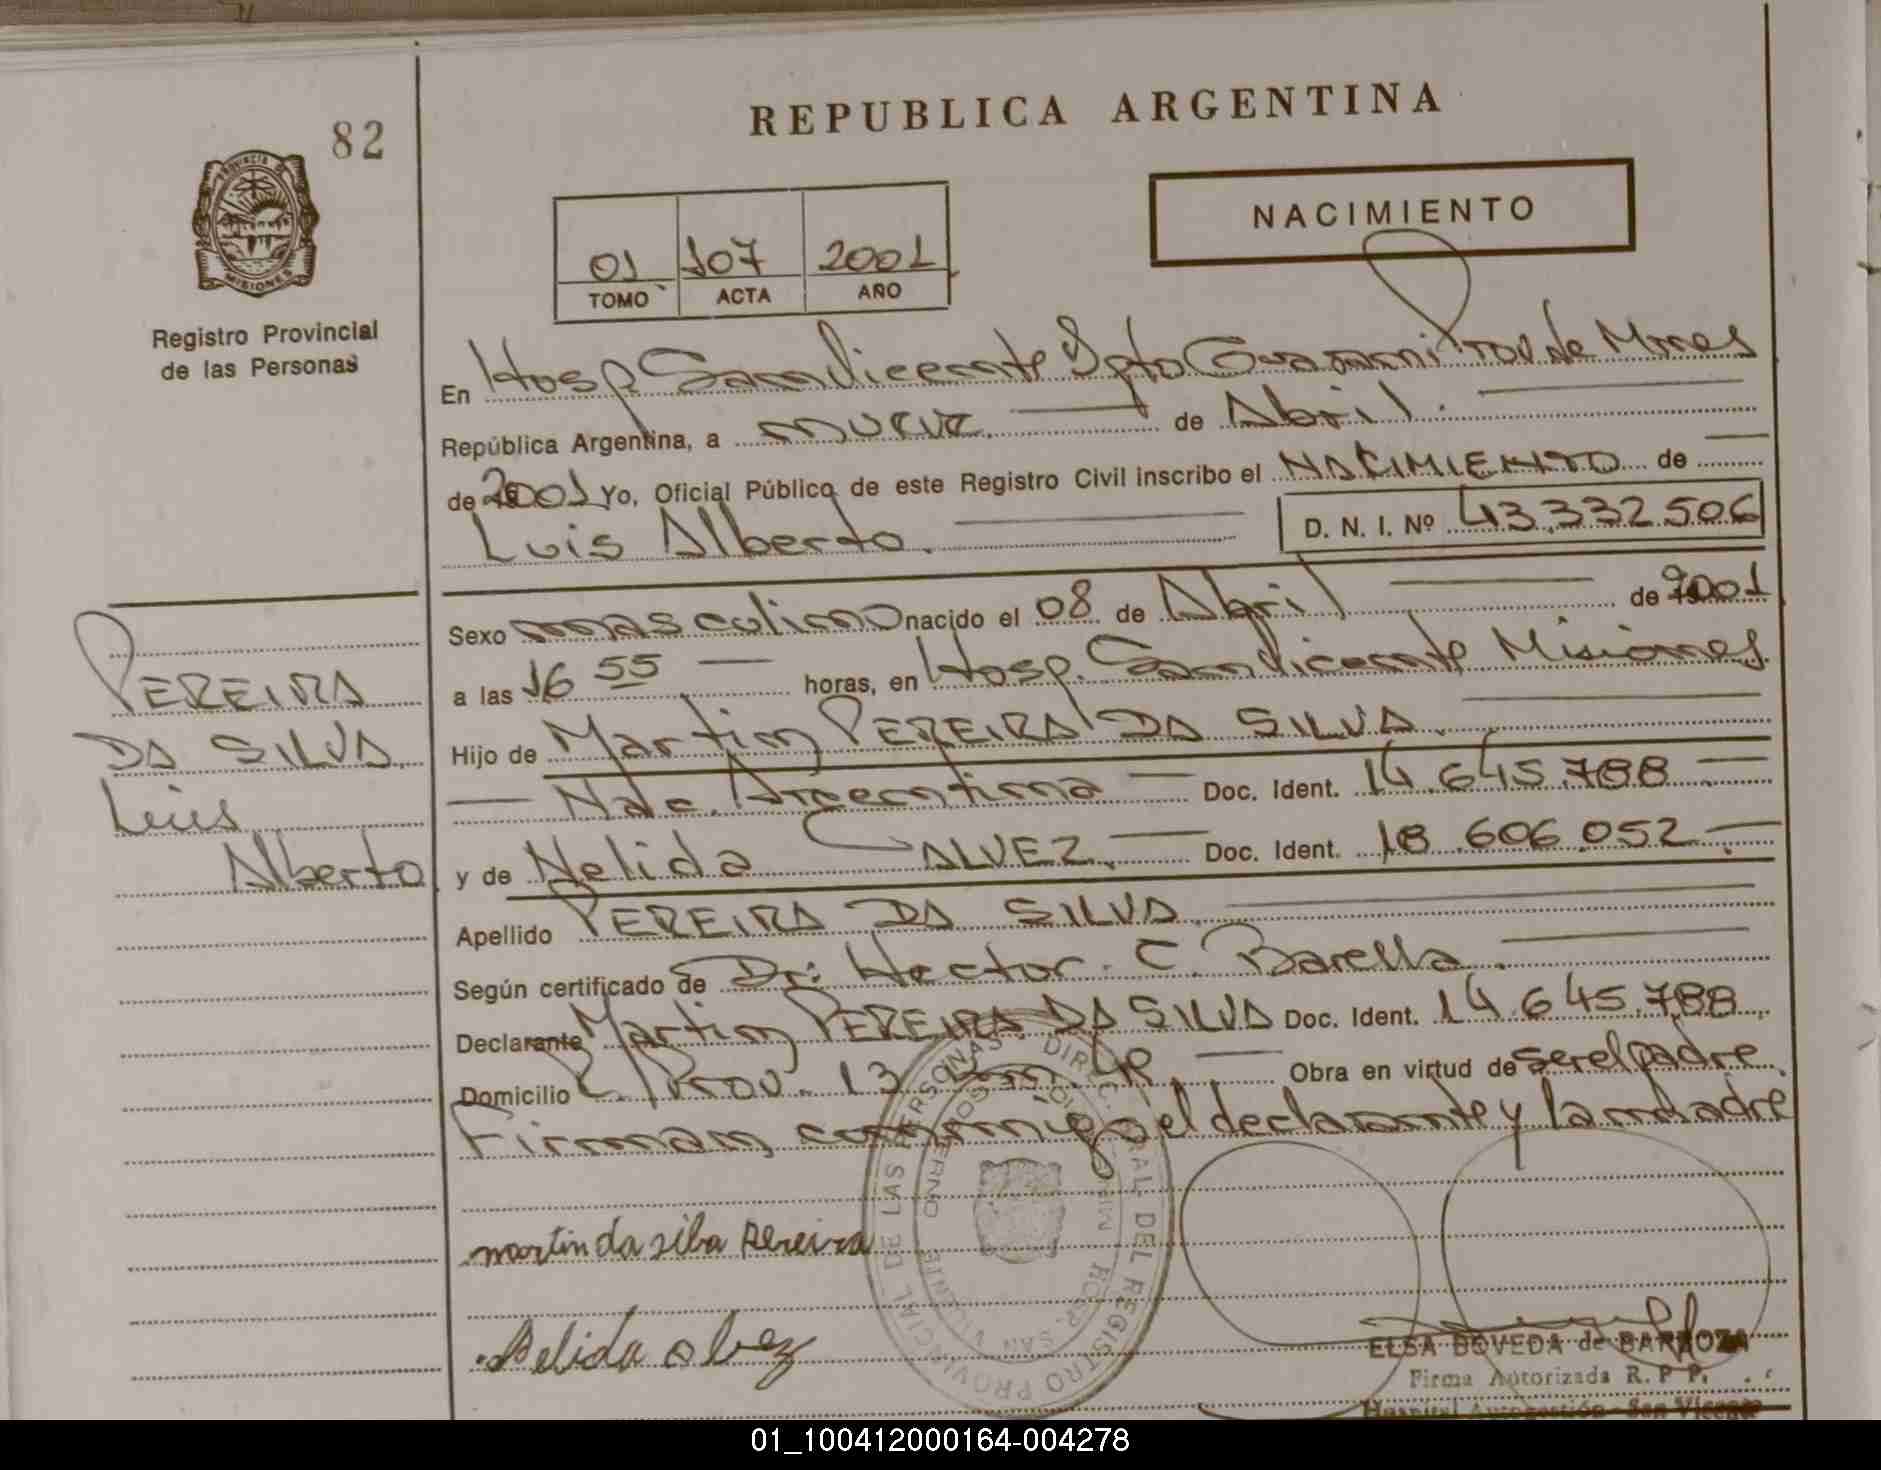 82
REPUBLICA ARGENTINA
PROVINCIA DE MISIONES
Registro Provincial
de las Personas
NACIMIENTO
01 107 2001
TOMO ACTA AÑO
En Hosp. San Vicente Dpto Guarani Prov de Mnes
República Argentina, a nueve de Abril
de 2001 Yo, Oficial Público de este Registro Civil inscribo el NACIMIENTO de
Luis Alberto D. N. I. Nº 43.332.506
Sexo masculino nacido el 08 de Abril de 2001
a las 16 55 horas, en Hosp. San Vicente Misiones
Hijo de Martin PEREIRA DA SILVA
Nac. Argentina Doc. Ident. 14.645.788
y de Nelida GALVEZ Doc. Ident. 18.606.052
Apellido PEREIRA DA SILVA
Según certificado de Dr. Hector C. Barella
Declarante Martin PEREIRA DA SILVA Doc. Ident. 14.645.788
Domicilio R. Prov. 13 Obra en virtud de ser el padre
Firman conmigo el declarante y la madre
PEREIRA
DA SILVA
Luis
Alberto
martin da silba Pereira
Nelida alvez
DIREC. GRAL DEL REGISTRO PROVINCIAL DE LAS PERSONAS
HOSP. SAN VICENTE
ELSA BOVEDA de BARROZA
Firma Autorizada R. P. P.
Hospital Autogestión - San Vicente
01_100412000164-004278